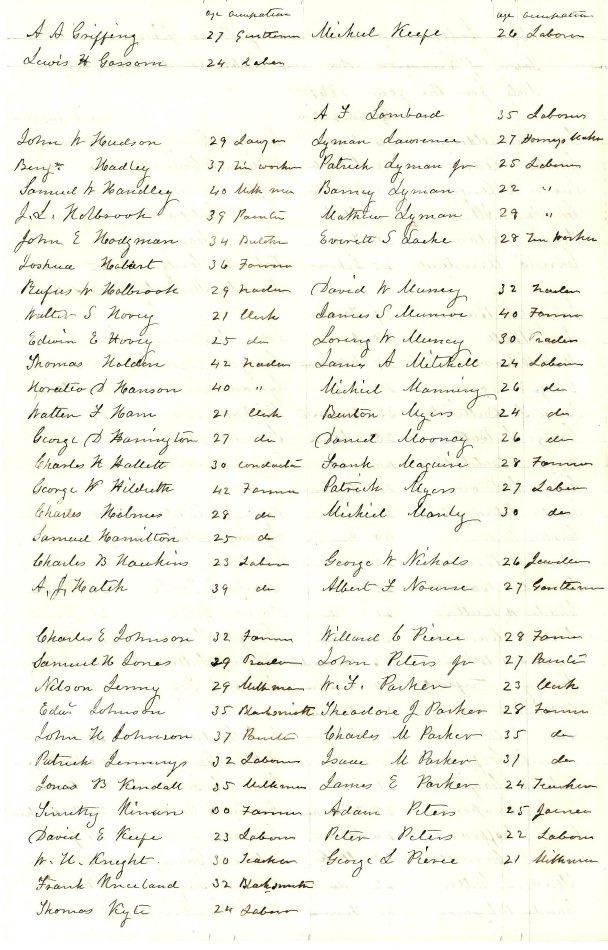 age occupation
A A Griffing 27 Gentleman
Lewis H Gossom 24 Labor
John W Hudson 29 Lawyer
Benjn Hadley 37 Tin worker
Samuel W Handley 40 Milk man
J. L. Holbrook 39 Painter
John E Hodgman 34 Butcher
Joshua Hobart 36 Farmer
Rufus W Holbrook 29 Trader
Walter S Hovey 21 Clerk
Edwin E Hovey 25 do
Thomas Holden 42 Trader
Horatio D Hanson 40 "
Walter F Ham 21 Clerk
George D Harrington 27 do
Charles H Hallett 30 conductor
George W Hildreth 42 Farmer
Charles Holmes 28 do
Samuel Hamilton 25 do
Charles B Hawkins 23 Labor
A. J. Hatch 39 do
Charles E Johnson 32 Farmer
Samuel H Jones 29 Trader
Nilson Jenny 29 Milkman
Edw. Johnson 35 Blacksmith
John H Johnson 37 Painter
Patrick Jennings 32 Laborer
Jonas B Kendall 35 Milkman
Timothy Kinian Farmer
David E Keefe 23 Laborer
W. H. Knight. 30 Teacher
Frank Kneeland 32 Blacksmith
Thomas Kyte 24 Labor
age occupation
Michiel Keefe 26 Laborer
A F Lombard 35 Laborer
Lyman Lawrence 27 Harness Maker
Patrick Lyman Jr 25 Laborer
Barney Lyman 22 "
Mathew Lyman 29 "
Everett S Locke 28 Tin Worker
David W Muncey 32 Trader
James S Munroe 40 Farmer
Loring W Muncey 30 Trader
James A Mitchell 24 Laborer
Michiel Manning 26 do
Benton Myers 24 do
Daniel Mooney 26 do
Frank Maguire 28 Farmer
Patrick Myers 27 Labor
Michiel Manly 30 do
George W Nichols 26 Jeweler
Albert F Nourse 27 Gentleman
Willard C Pierce 28 Farmer
John Peters Jr 27 Painter
W. F. Parker 23 Clerk
Theodore J Parker 28 Farmer
Charles M Parker 35 do
Isaac M Parker 31 do
James E Parker 24 Teacher
Adam Peters 25 Joiner
Peter Peters 22 Laborer
George L Pierce 21 Milkman